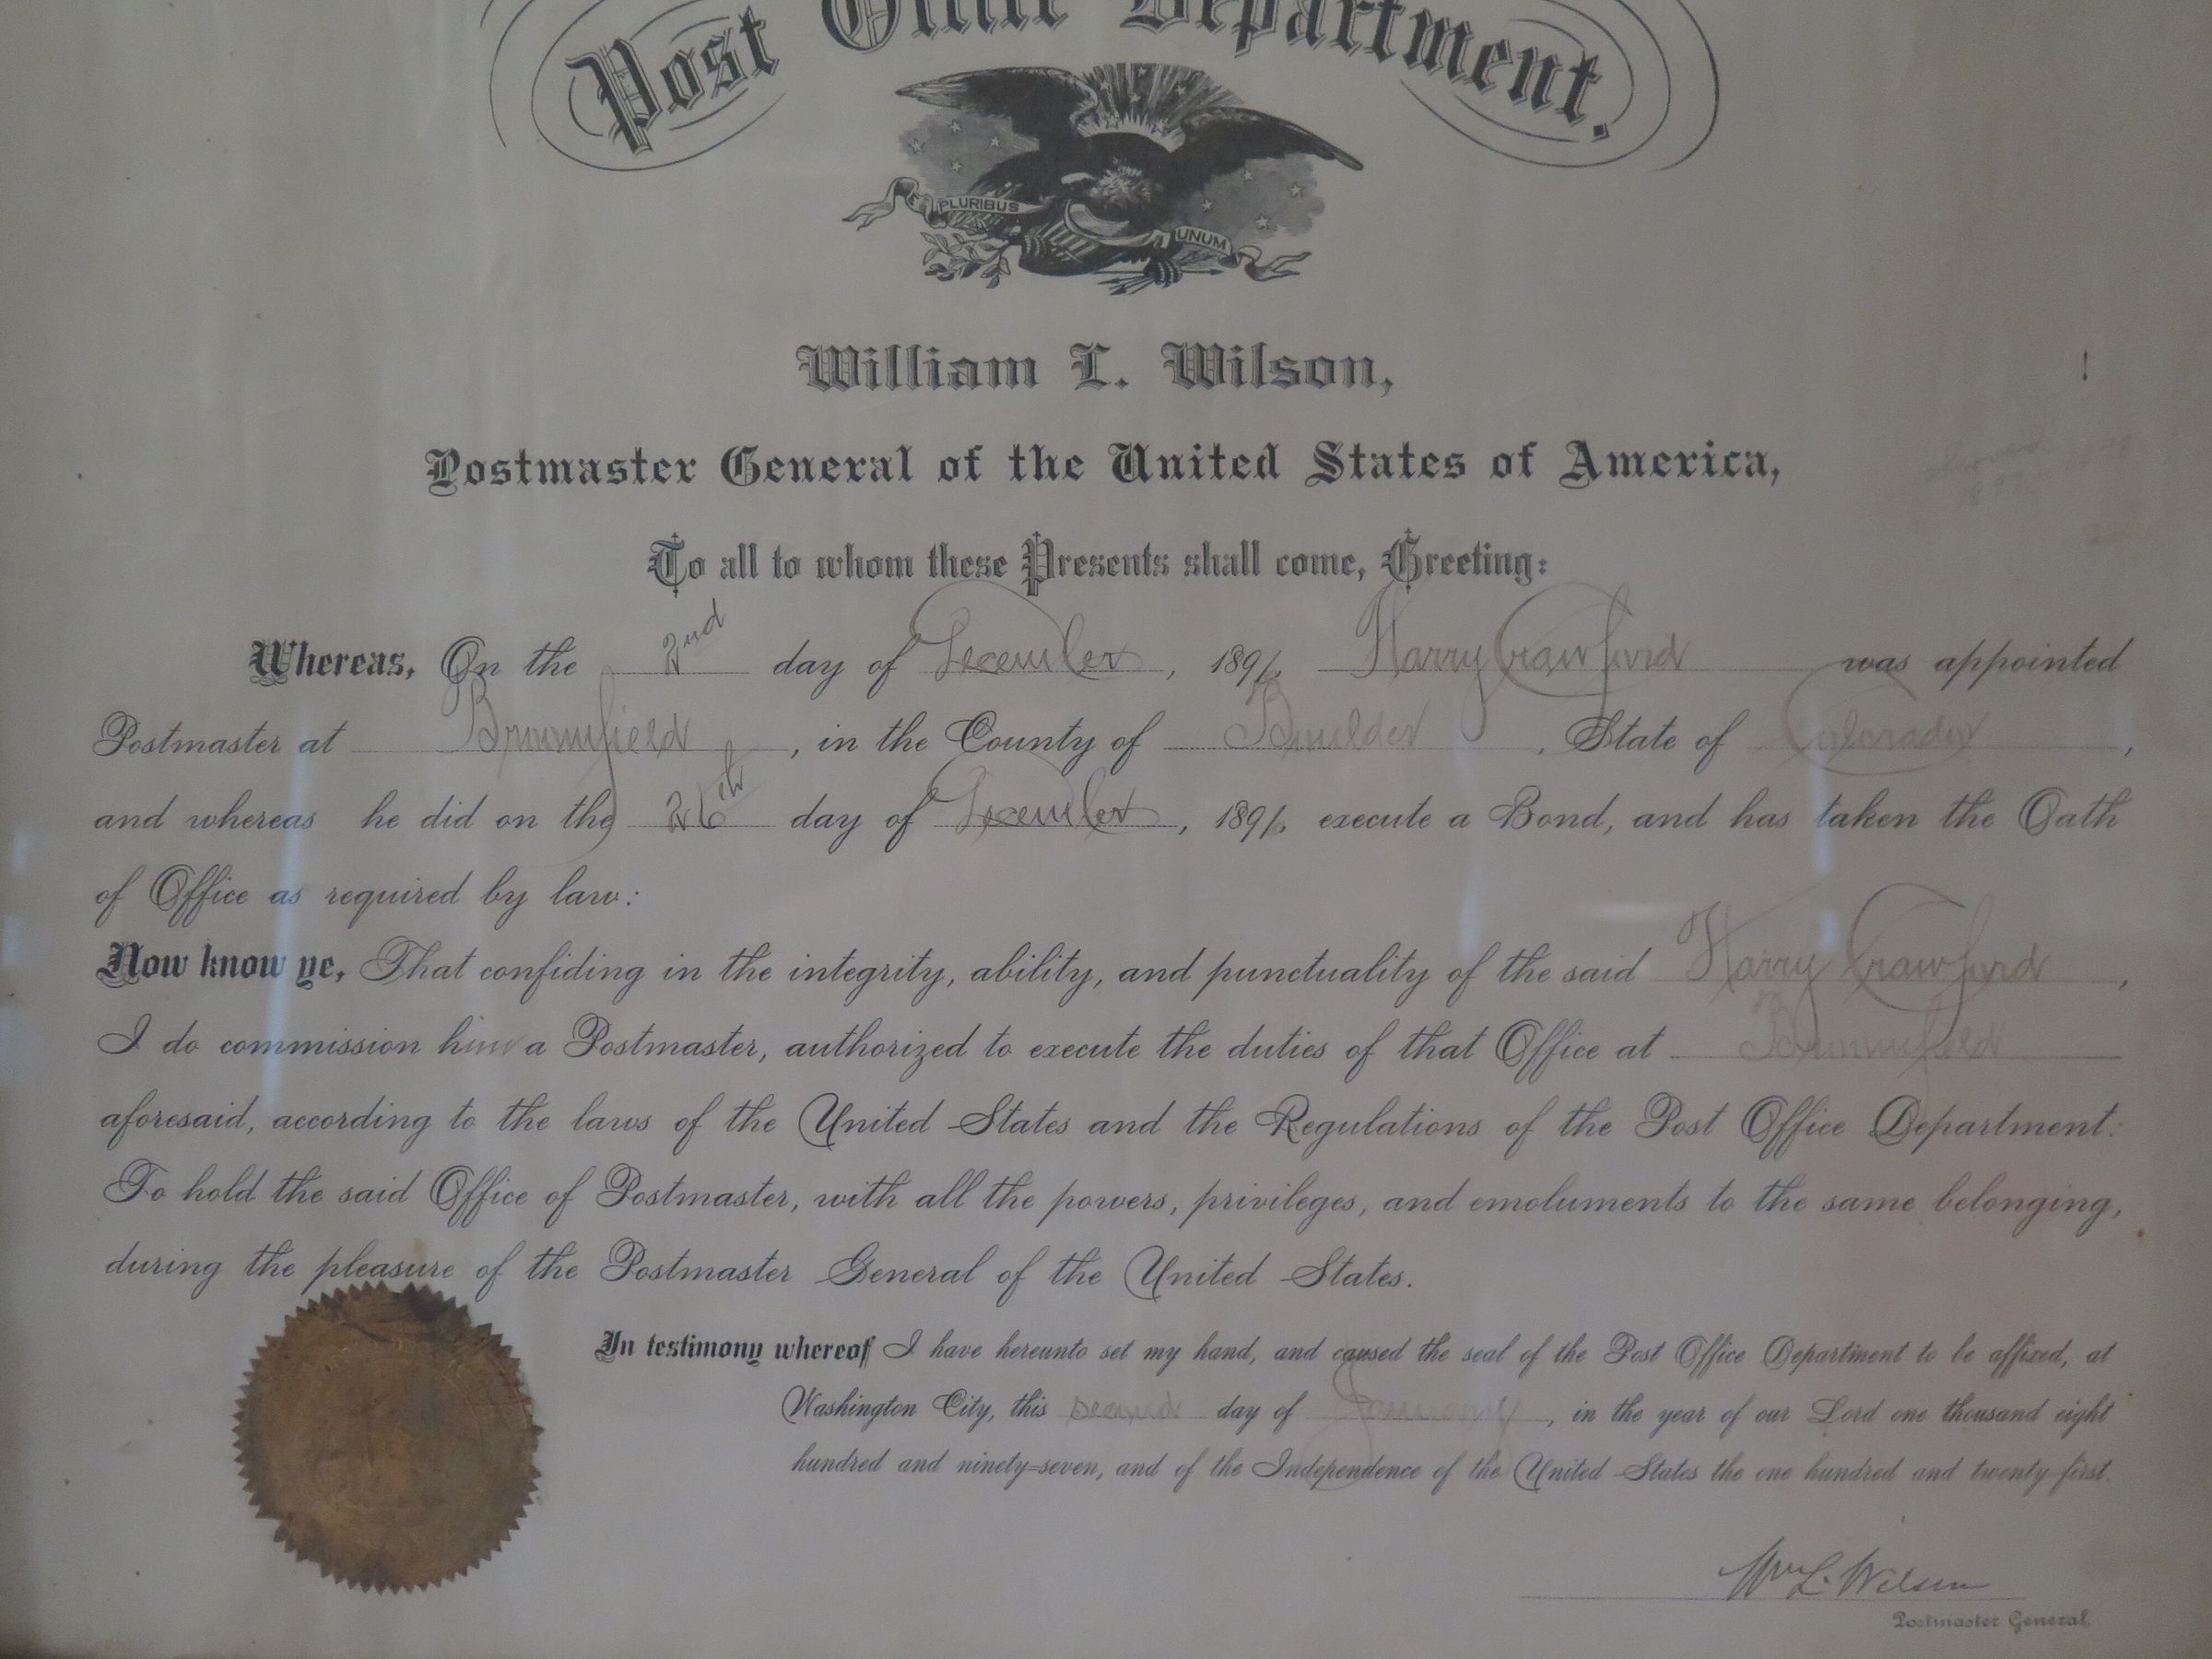 Post Office Department.
E PLURIBUS UNUM
William L. Wilson,
Postmaster General of the United States of America,
To all to whom these Presents shall come, Greeting:
Whereas, On the 2nd day of December, 1896, Harry Crawford was appointed
Postmaster at Broomfield, in the County of Boulder, State of Colorado,
and whereas he did on the 26th day of December, 1896, execute a Bond, and has taken the Oath
of Office as required by law:
Now know ye, That confiding in the integrity, ability, and punctuality of the said Harry Crawford,
I do commission him a Postmaster, authorized to execute the duties of that Office at Broomfield
aforesaid, according to the laws of the United States and the Regulations of the Post Office Department:
To hold the said Office of Postmaster, with all the powers, privileges, and emoluments to the same belonging,
during the pleasure of the Postmaster General of the United States.
In testimony whereof I have hereunto set my hand, and caused the seal of the Post Office Department to be affixed, at
Washington City, this second day of January, in the year of our Lord one thousand eight
hundred and ninety-seven, and of the Independence of the United States the one hundred and twenty-first.
Wm L. Wilson
Postmaster General.